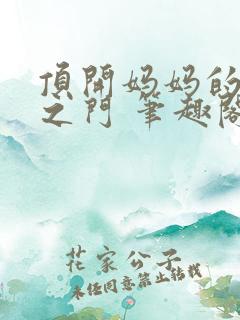 頂開妈妈的
之门 筆趣阁
花家公子
未经同意禁止转载